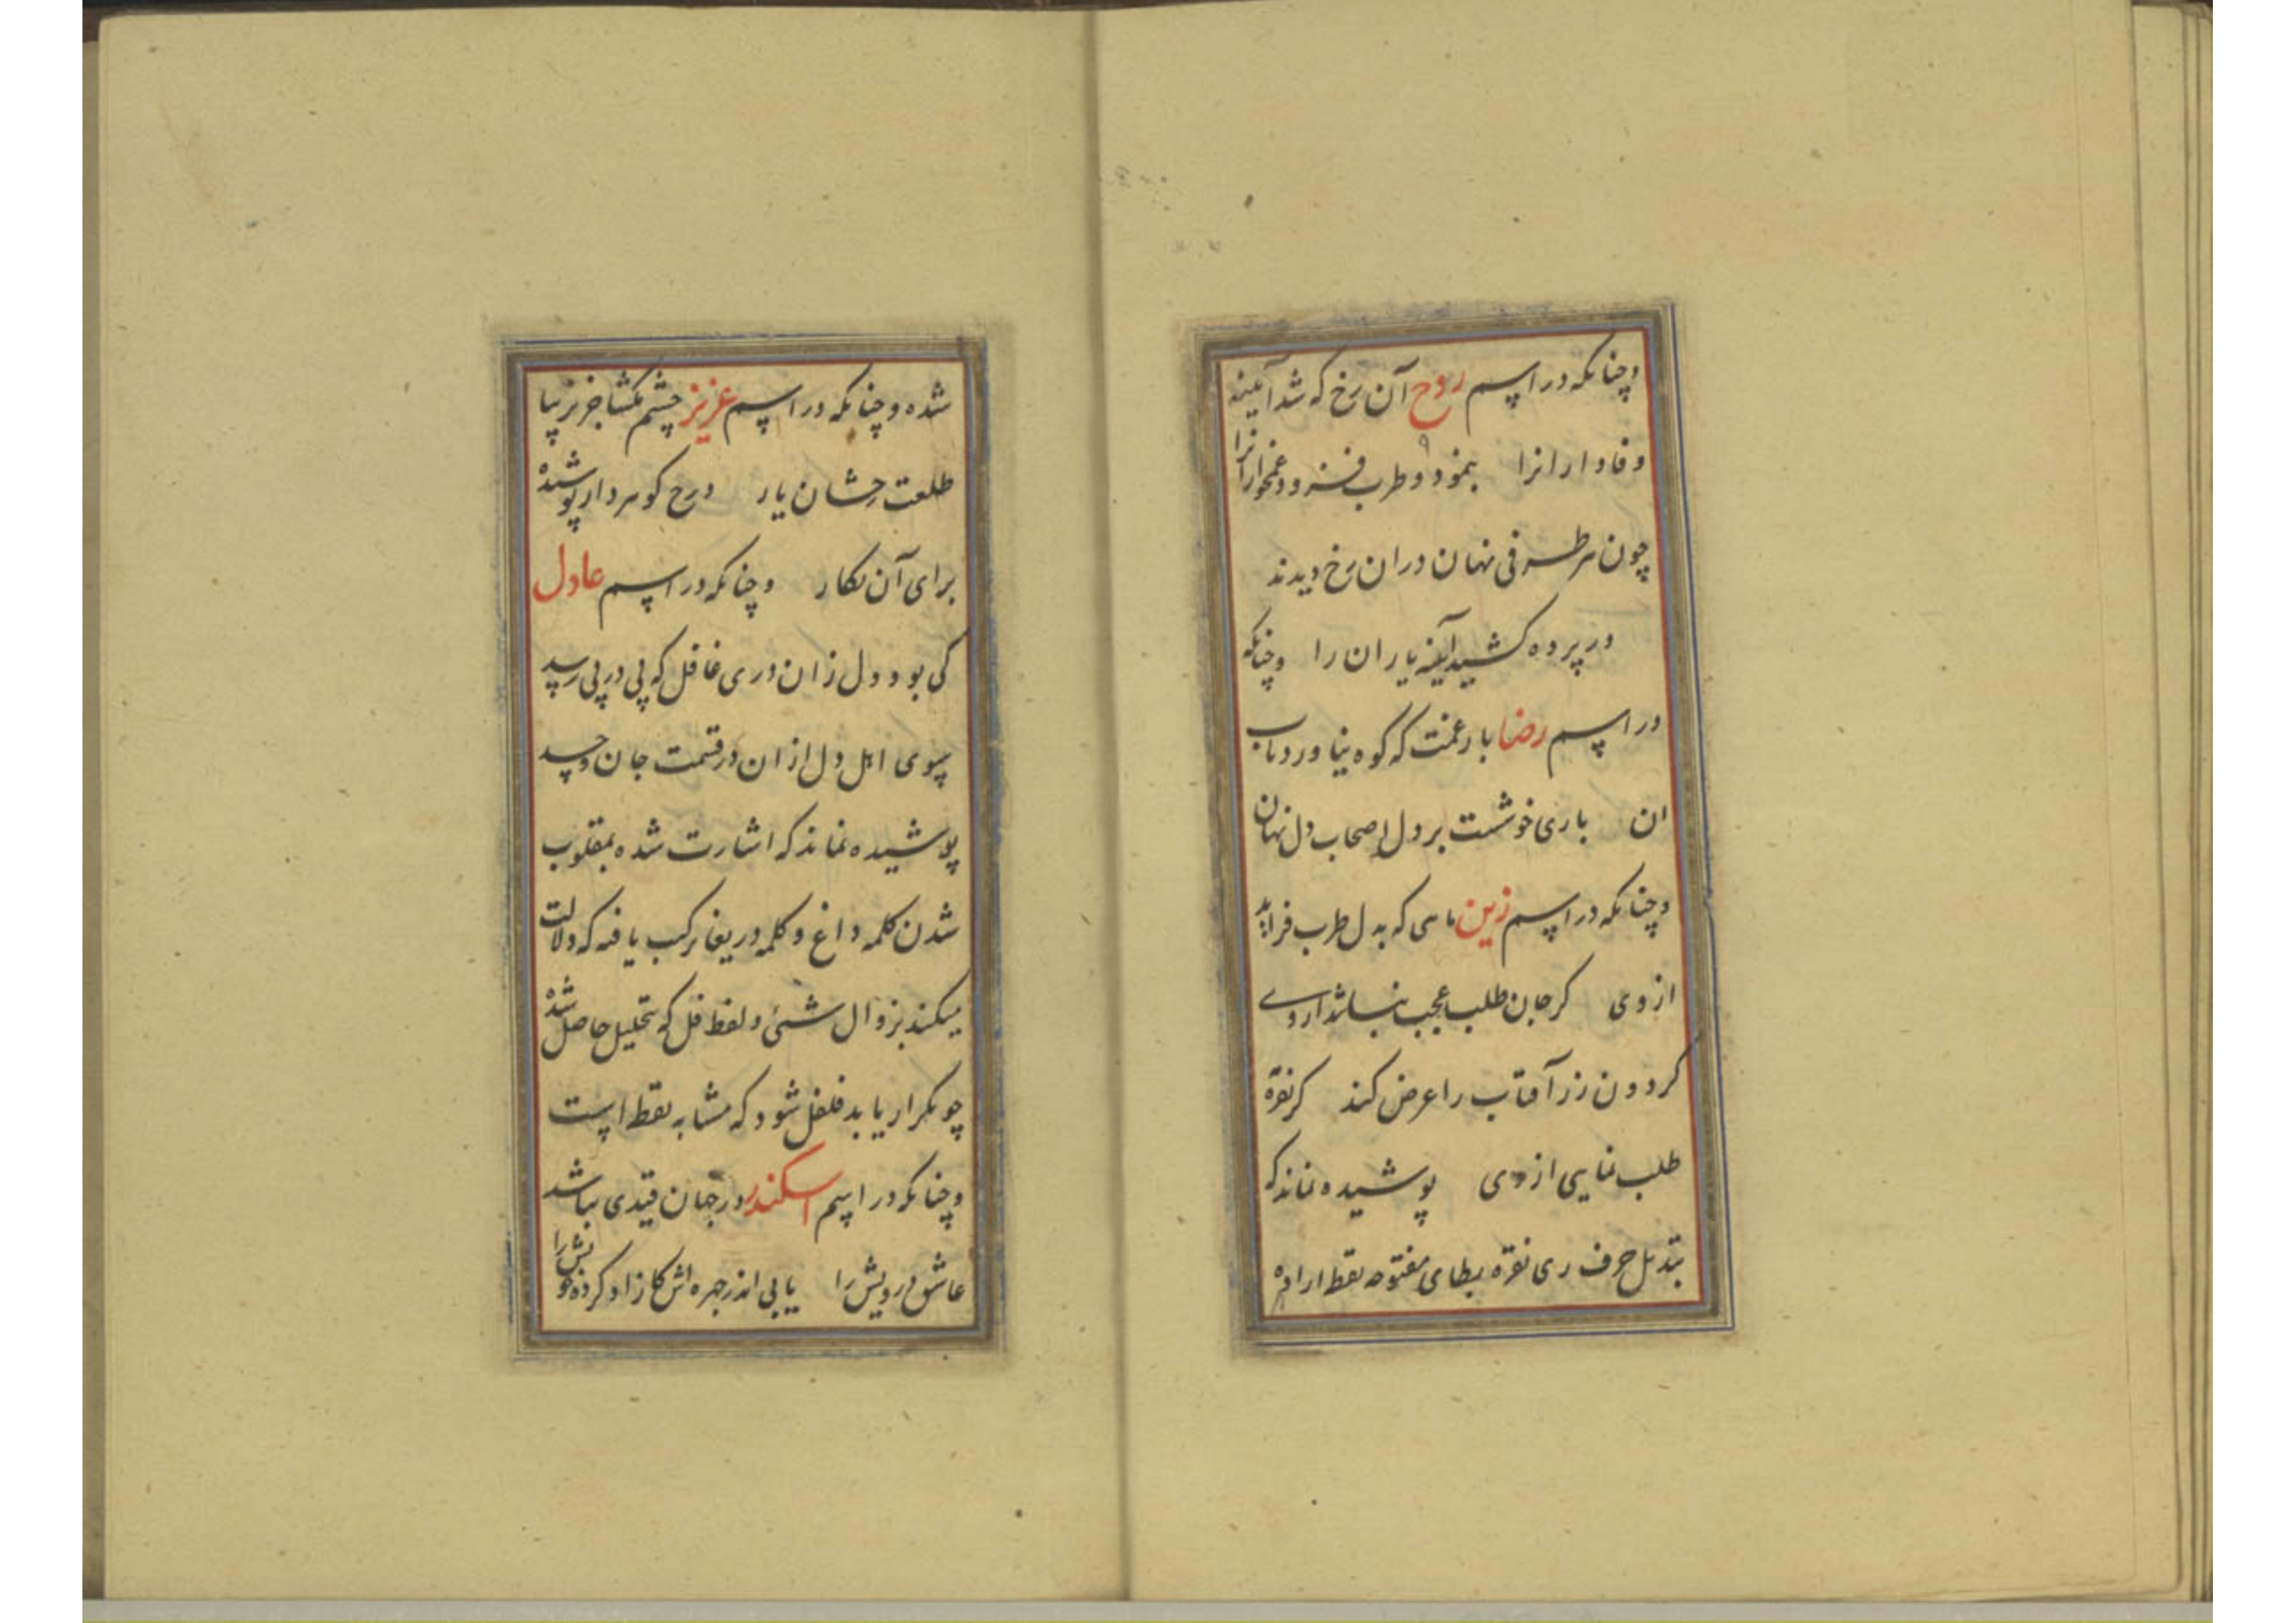 وچنانکه در اسم روح آن رخ که شد آیینه
وفادارانرا بنمود و طرب فزود غمخوارانرا
چون هر طرفی نهان دران رخ دیدند
در پرده کشید آینه یاران را وچنانکه
در اسم رضا بار غمت که کوه نیاورد تاب
ان باری خوشست بر دل اصحاب دل نهان
وچنانکه در اسم زین ماهی که بدل طرب فزاید
از وی کر جان طلبد عجب نباشد از وے
کردون زر آفتاب را عرض کند کر نقره
طلب نمایی از وی پوشیده نماند که
تبدیل حرف ری نقره بطای مفتوحه نقط اراده
شده وچنانکه در اسم عزیز چشم بکشا جز نزیبا
طلعت رخشان یار درج کوهر دار پوشیده
برای آن نکار وچنانکه در اسم عادل
کی بود دل زان دری غافل که پی در پی رسد
سوی اهل دل ازان در قسمت جان و جسد
پوشیده نماند که اشارت شده بمقلوب
شدن کلمه داغ و کلمه دریغا ترکیب یافته که دلالت
میکند بزوال شئ و لفظ فل که بتحلیل حاصل شده
چو تکرار یابد فلفل شود که مشابه نقط است
وچنانکه در اسم اسکندر در جهان قیدی نباشد
عاشق درویش را یابی اندر چهره اش کازاد کرده خویش را